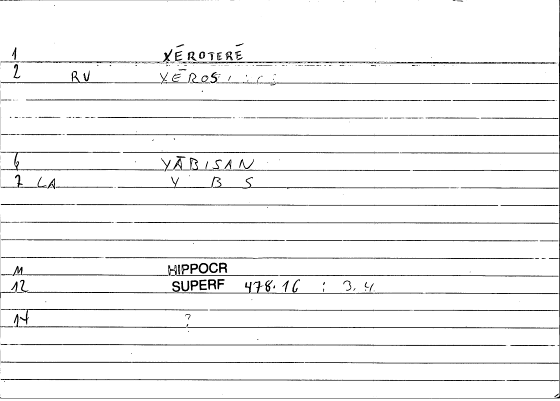 1 XĒROTERĒ
2 RV XĒROS
6 YĀBISAN
7 LA Y B S
11 HIPPOCR
12 SUPERF 478.16 : 3.4
14 ?